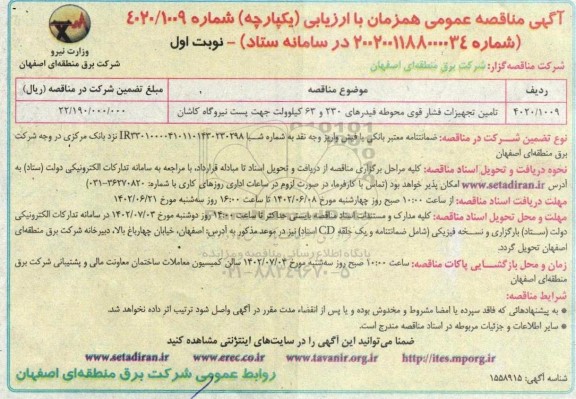 آگهی مناقصه عمومی همزمان با ارزیابی (یکپارچه) شماره ۴۰۲۰/۱۰۰۹
(شماره ۲۰۰۲۰۰۱۱۸۸۰۰۰۰۳۴ در سامانه ستاد) – نوبت اول
وزارت نیرو
شرکت برق منطقه‌ای اصفهان
شرکت مناقصه‌گزار: شرکت برق منطقه‌ای اصفهان
ردیف موضوع مناقصه مبلغ تضمین شرکت در مناقصه (ریال)
۴۰۲۰/۱۰۰۹ تامین تجهیزات فشار قوی محوطه فیدرهای ۲۳۰ و ۶۳ کیلوولت جهت پست نیروگاه کاشان ۲۲/۱۹۰/۰۰۰/۰۰۰
نوع تضمین شرکت در مناقصه: ضمانتنامه معتبر بانکی یا فیش واریز وجه نقد به شماره شبا نزد بانک مرکزی در وجه شرکت
برق منطقه‌ای اصفهان
نحوه دریافت و تحویل اسناد مناقصه: کلیه مراحل برگزاری مناقصه از دریافت و تحویل اسناد تا مبادله قرارداد، با مراجعه به سامانه تدارکات الکترونیکی دولت (ستاد) به
آدرس www.setadiran.ir امکان پذیر خواهد بود (تماس با کارفرما، در صورت لزوم در ساعات اداری روزهای کاری با شماره: ۳۶۳۷۰۸۲۰-۰۳۱)
مهلت دریافت اسناد مناقصه: از ساعت ۱۰:۰۰ صبح روز چهارشنبه مورخ ۱۴۰۲/۰۶/۰۸ تا ساعت ۱۶:۰۰ روز سه‌شنبه مورخ ۱۴۰۲/۰۶/۲۱
مهلت و محل تحویل اسناد مناقصه: کلیه مدارک و مستندات اسناد مناقصه بایستی حداکثر تا ساعت ۱۴:۰۰ روز دوشنبه مورخ ۱۴۰۲/۰۷/۰۳ در سامانه تدارکات الکترونیکی
دولت (ستاد) بارگزاری و نسخه فیزیکی (شامل ضمانتنامه و یک حلقه CD اسناد) نیز در موعد مذکور به آدرس: اصفهان، خیابان چهارباغ بالا، دبیرخانه شرکت برق منطقه‌ای
اصفهان تحویل گردد.
زمان و محل بازگشایی پاکات مناقصه: ساعت ۱۰:۰۰ صبح روز سه‌شنبه مورخ ۱۴۰۲/۰۷/۰۴ سالن کمیسیون معاملات ساختمان معاونت مالی و پشتیبانی شرکت برق
منطقه‌ای اصفهان
شرایط مناقصه:
به پیشنهادهائی که فاقد سپرده یا امضا مشروط و مخدوش بوده و یا پس از انقضاء مدت مقرر در آگهی واصل شود ترتیب اثر داده نخواهد شد.
سایر اطلاعات و جزئیات مربوطه در اسناد مناقصه مندرج است.
ضمنا می‌توانید این آگهی را در سایت‌های اینترنتی مشاهده کنید
http://ites.mporg.ir www.tavanir.org.ir www.erec.co.ir www.setadiran.ir
شناسه آگهی: ۱۵۵۸۹۱۵ روابط عمومی شرکت برق منطقه‌ای اصفهان